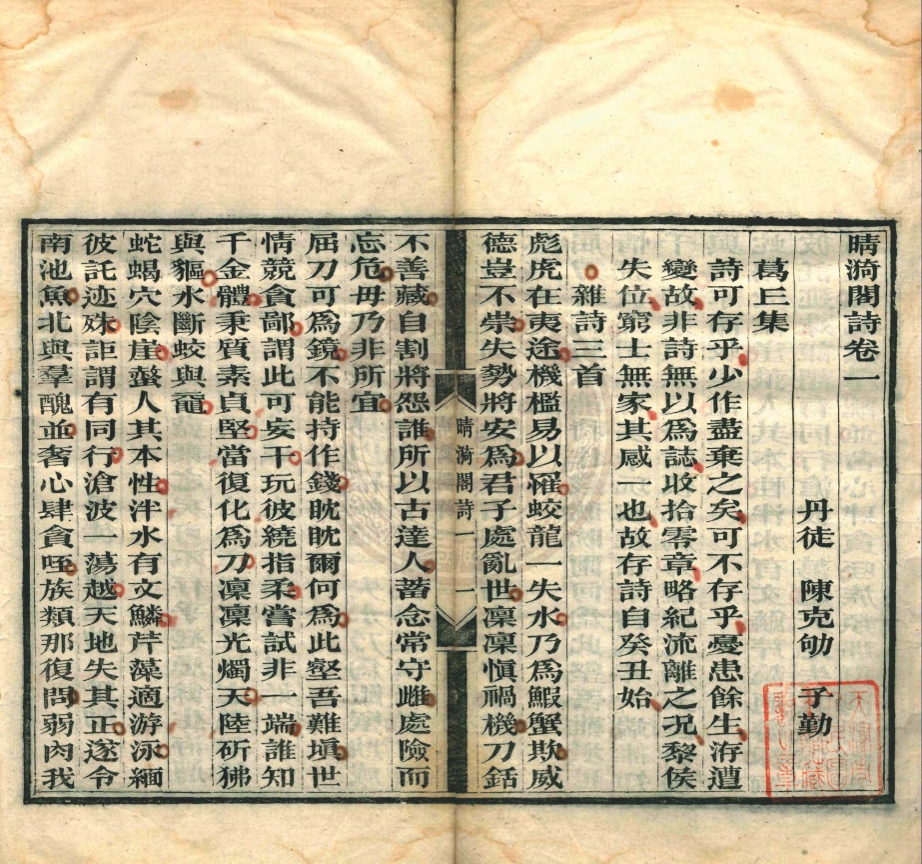 晴漪閣詩卷一
丹徒 陳克劬 子勤
葛丘集
詩可存乎少作盡棄之矣可不存乎憂患餘生洊遭
變故非詩無以爲誌收拾零章略紀流離之况黎侯
失位窮士無家其感一也故存詩自癸丑始
雜詩三首
彪虎在夷途機檻易以罹蛟龍一失水乃爲鰕蟹欺威
德豈不崇失勢將安爲君子處亂世凛凛愼禍機刀銛
不善藏自割將怨誰所以古達人蓄念常守雌處險而
忘危毋乃非所宜
屈刀可爲鏡不能持作錢眈眈爾何爲此壑吾難塡世
情競貪鄙謂此可妄干玩彼繞指柔嘗試非一端誰知
千金體秉質素貞堅當復化爲刀凛凛光燭天陸斫狒
與貙水斷蛟與黿
蛇蝎穴陰崖螫人其本性泮水有文鱗芹藻適游泳緬
彼託迹殊詎謂有同行滄波一蕩越天地失其正遂令
南池魚北與羣醜並奢心肆貪咥族類那復問弱肉我
晴漪閣詩一 一